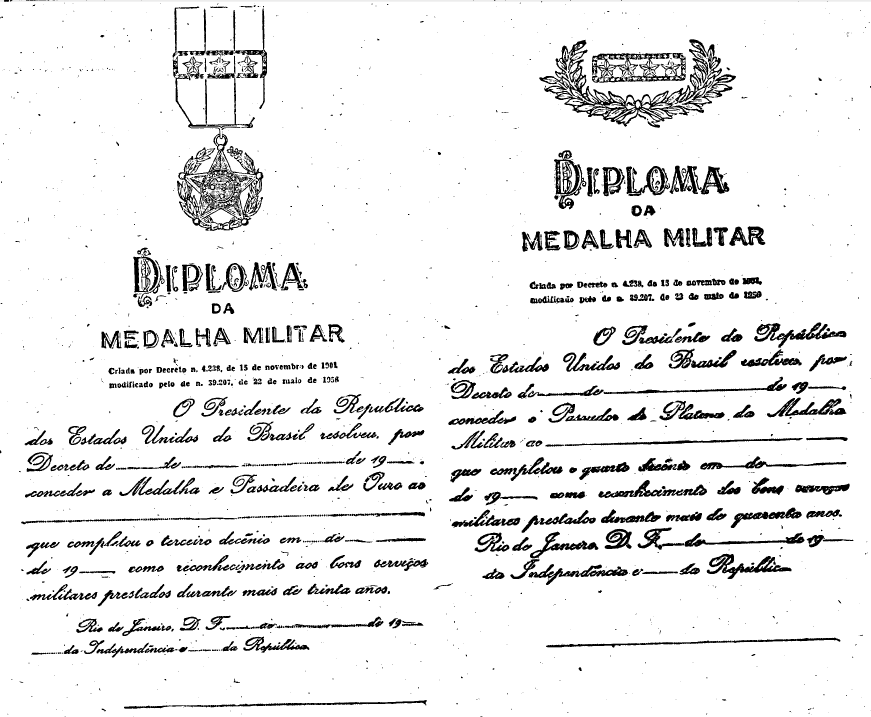 DIPLOMA
DA
MEDALHA MILITAR
Criada por Decreto n. 4.238, de 15 de novembro de 1901,
modificado pelo de n. 39.207, de 22 de maio de 1956
O Presidente da Republica
dos Estados Unidos do Brasil resolveu, por
Decreto de de de 19 .
conceder a Medalha e Passadeira de Ouro ao
que completou o terceiro decênio em de
de 19 como reconhecimento aos bons serviços
militares prestados durante mais de trinta anos.
Rio de Janeiro, D. F. de de 19
da Independência e da República
DIPLOMA
DA
MEDALHA MILITAR
Criada por Decreto n. 4.238, de 15 de novembro de 1901,
modificado pelo de n. 39.207, de 22 de maio de 1956
O Presidente da República
dos Estados Unidos do Brasil resolveu, por
Decreto de de de 19 .
conceder o Passador de Platina da Medalha
Militar ao
que completou o quarto decênio em de
de 19 como reconhecimento dos bons serviços
militares prestados durante mais de quarenta anos.
Rio de Janeiro, D. F. de de 19
da Independência e da República